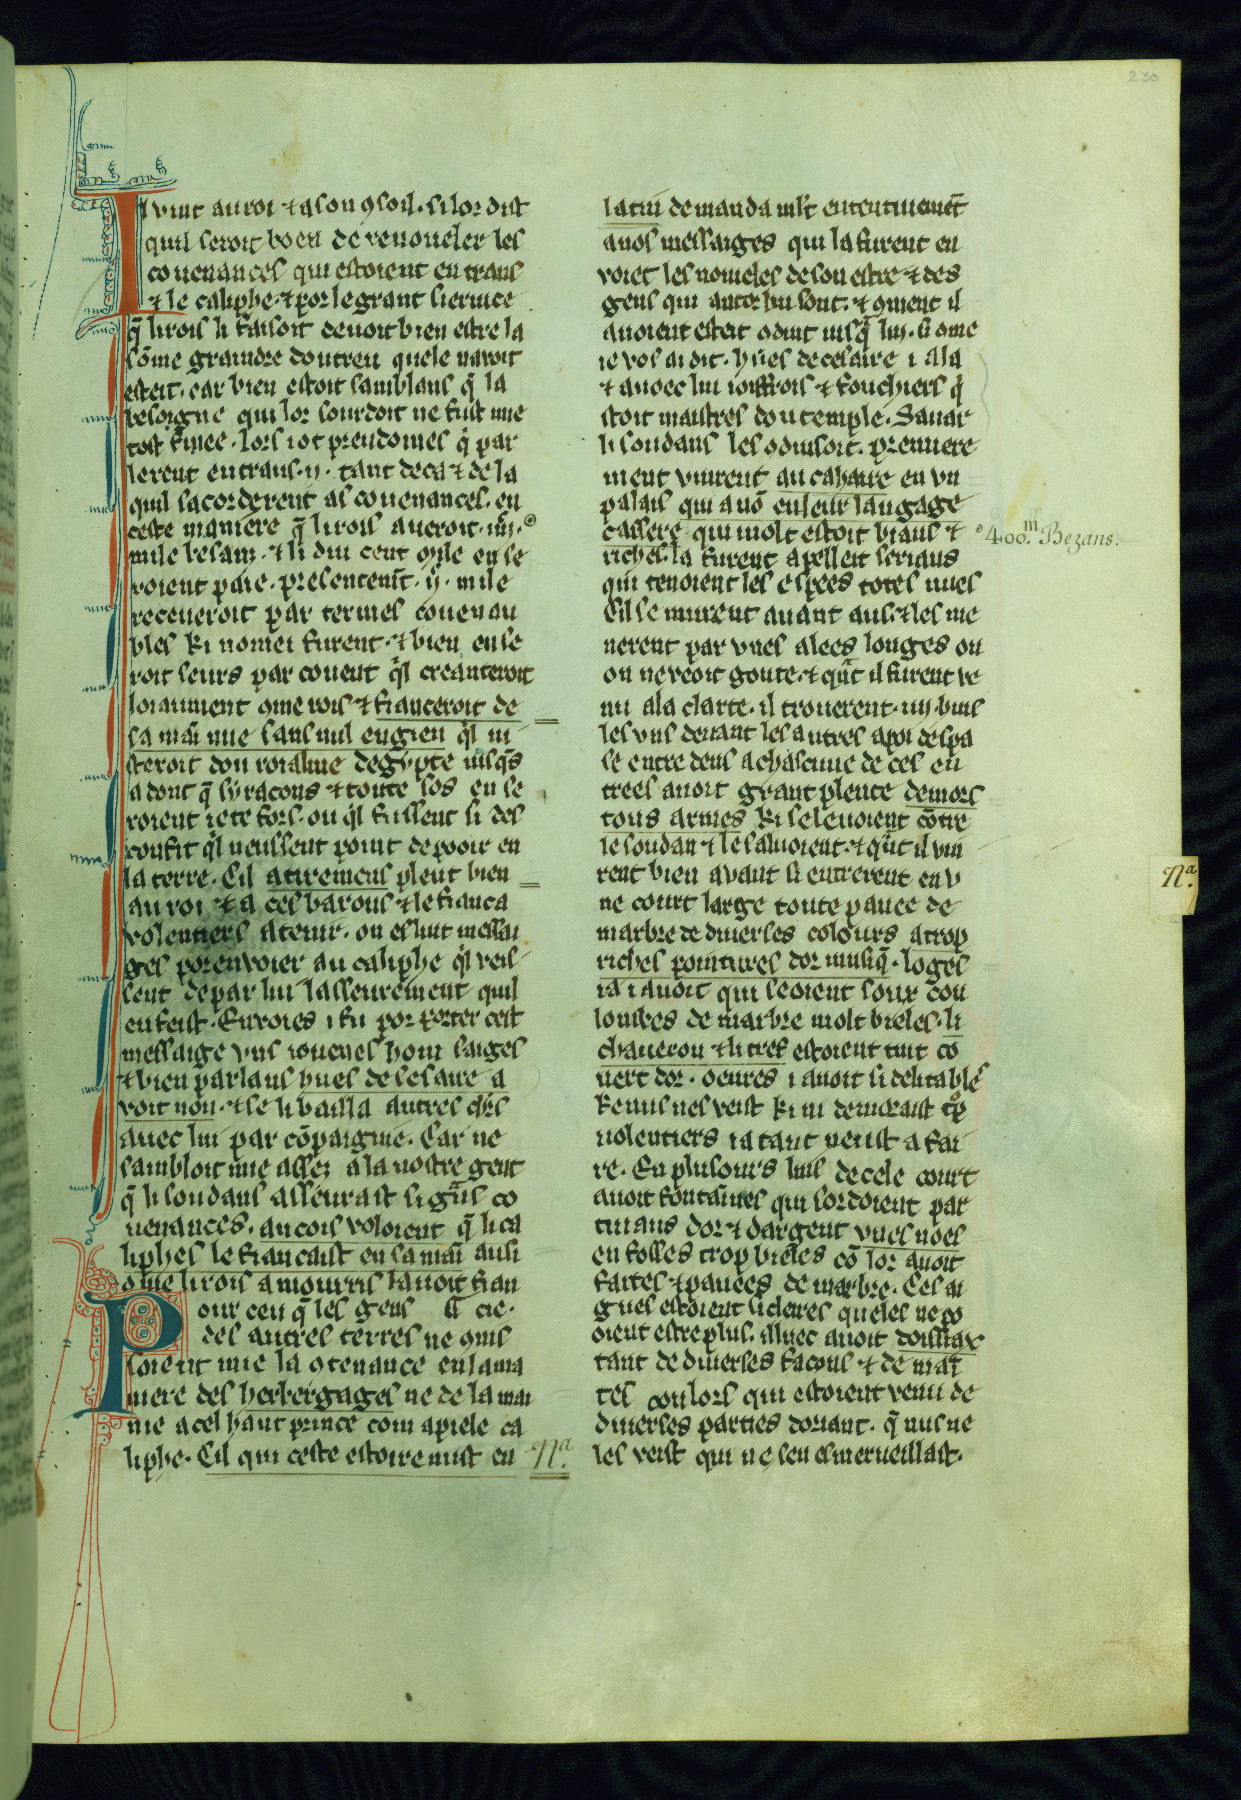 230
Il vint au roi ⁊ a son ꝯsoil. si lor dist
quil seroit boen de renoueler les
couenances qui estoient entraus
⁊ le caliphe. ⁊ por le grant seruice
q̃ li rois li faisoit deuoit bien estre la
sõme graindre dou treu quele nauoit
esteit. car bien estoit samblans q̃ la
besoigne qui lor sourdoit ne fust mie
tost finee. lors i ot preudomes q̇ par
lerent entraus .ij. tant deca ⁊ de la
quil sacorderent as couenances. en
ceste maniere q̃ li rois aueroit .iiij.ᶜ
mile besanz. ⁊ li dui cent mile en se
roient paie. presentemt̃ .ij. mile
receueroit par termes couenau
bles ki nomei furent. ⁊ bien en se
roit seurs par couent qⁱl creanteroit
loiaument ꝯme rois ⁊ fianceroit de
sa main nue sans mil engien qⁱl ni
steroit dou roialme degypte iusq̃s
a dont q̃ syracons ⁊ toute sos en se
roient iete fors. ou qⁱl fussent si des
confit qⁱl neussent point de pooir en
la terre. Cil atiremens pleut bien
au roi ⁊ a ces barons ⁊ le fianca
volentiers a tenir. on eslut messai
ges por enuoier au caliphe qⁱl veis
sent de par lui lasseurement quil
en feist. Enuoies i fu por porter cest
messaige vns iouenes hom saiges
⁊ bien parlans hues de cesaire a
voit non. ⁊ se li bailla autres chrs̃
auec lui par cõpaignie. Car ne
sambloit mie assez a la nostre gent
q̃ li soudans asseurast si grãs co
uenances. ancois voloient q̃ li ca
liphes le fiancaist en sa mai ausi
ꝯme li rois amourris lauoit fian
Pour ceu q̃ les gens cie.
des autres terres ne ꝯnis
soient mie la ꝯtenance en la ma
niere des herbergages ne de la mai
nie a cel haut prince com apiele ca
liphe. Cil qui ceste estoire mist en
Nᵃ.
latin demanda mlt̃ ententiuemt̃
a nos messaiges qui la furent en
voiet les noueles de son estre ⁊ des
gens qui antor lui sont. ⁊ ꝯment il
auoient esteit ꝯduit iusq̃ lui. si ꝯme
ie vos ai dit. hues de cesaire i ala
⁊ auoec lui ioiffrois ⁊ fouchiers q̇
stoit maistres dou temple. Sauar
li soudans les ꝯduisoit. premiere
ment vinrent au cahaire en vn
palais qui a nõ en leur langage
cassere qui molt estoit biaus ⁊
riches. la furent apelleit serians
qui tenoient les espees totes nues
Cil se mirent auant aus. ⁊ les me
nerent par vnes alees longes ou
on ne veoit goute. ⁊ qᵃnt il furent ve
nu a la clarte. il trouerent .iiij. huis
les vns deuant les autres a poi despa
se entre deus a chascune de ces en
trees auoit grant plente de mors
tous armes ki se leuoient cõtre
le soudan ⁊ le saluoient. ⁊ qᵃnt il vin
rent bien auant si entrerent en v
ne court large toute pauee de
marbre de diuerses colours a trop
riches pointures dor musiq̃. loges
ia i auoit qui seoient sour cou
lombes de marbre molt bieles. li
chaueron ⁊ li tref estoient tuit co
uert dor. oeures i auoit si delitables
ke nus nes veist ki ni demorast tp̃
uolentiers ia tant neust a fai
re. En plusours lius de cele court
auoit fontainnes qui sordoient par
tuiaus dor ⁊ dargent vnes noes
en fosses trop bieles cõ lor auoit
faites ⁊ pauees de marbre. Ces ai
gues estoient si cleres queles ne po
oient estre plus. illuec auoit doisiax
tant de diuerses facons ⁊ de mai
tes coulors qui estoient venu de
diuerses parties doriant. q̃ nus ne
les veist qui ne sen esmerueillast.
° 400.ᵐ Bezans.
Nᵃ.